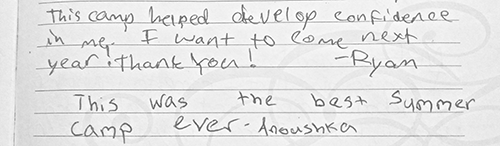 This camp helped develop confidence
in me. I want to come next
year. thank you! -Ryan
This was the best summer
camp ever - Anoushka